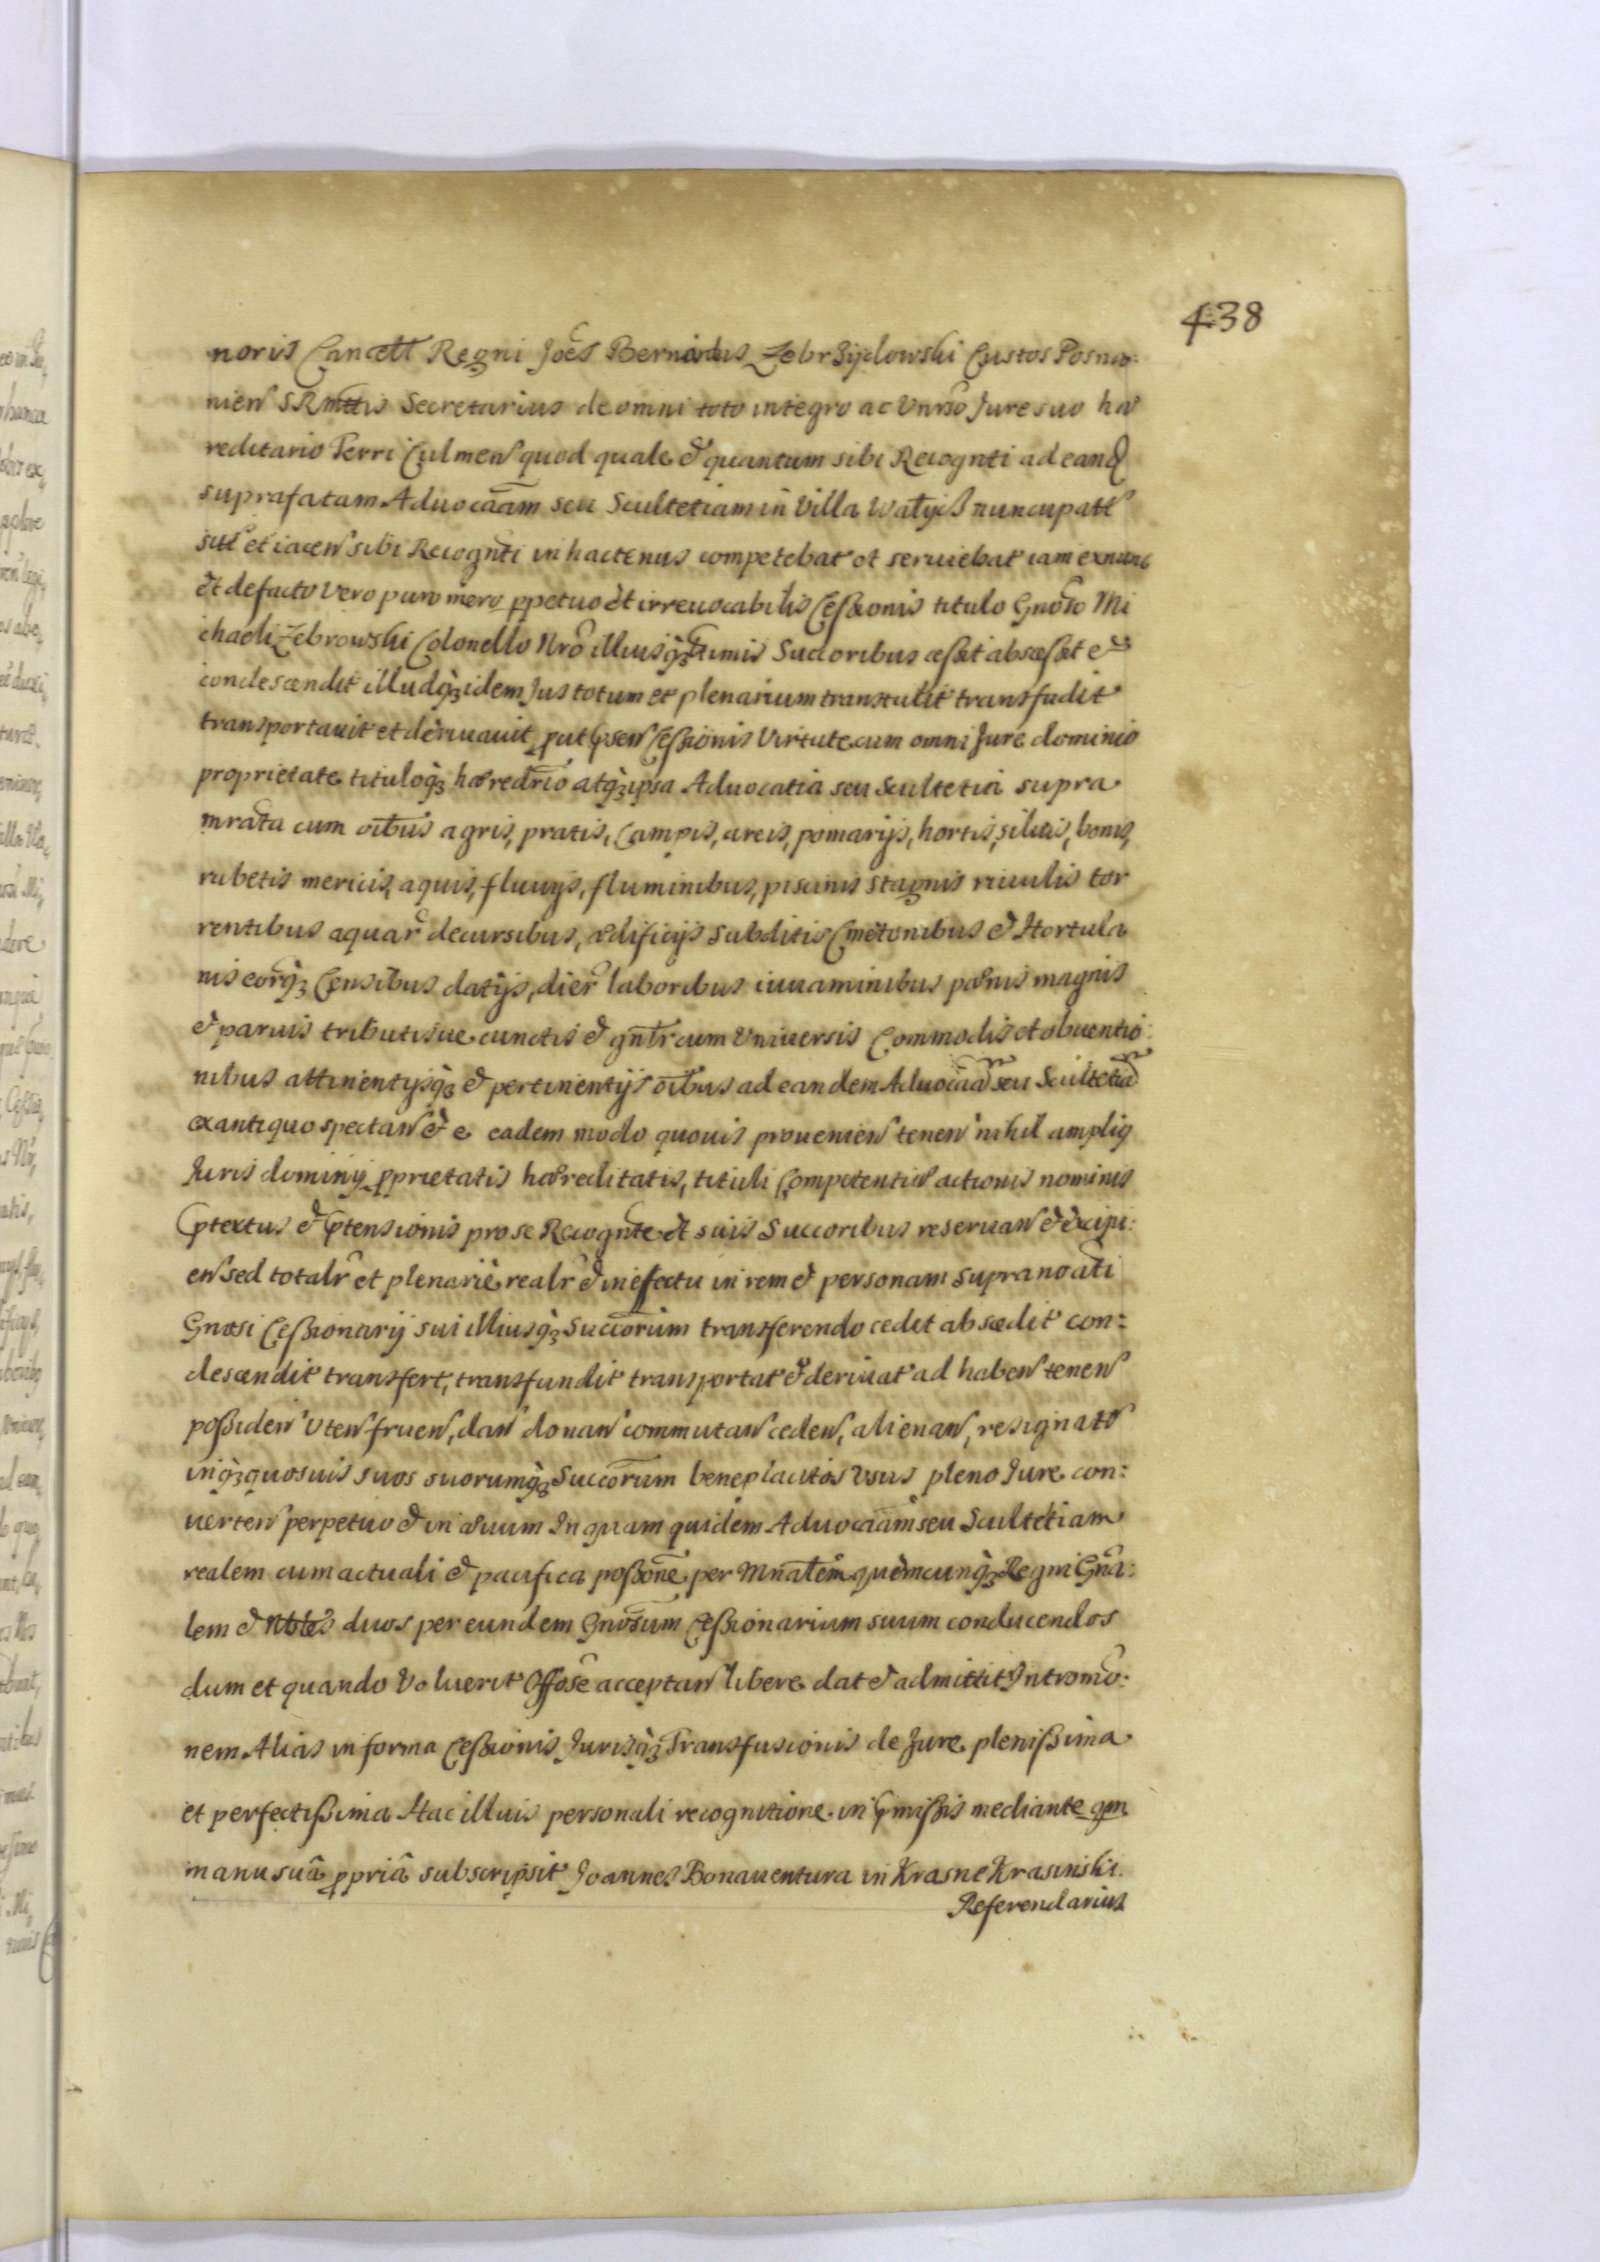 438
noris Cancell Regni Joes Bernardus Zebrzijdowski Custos Posna:
nien SRMttis Secretarius de omni toto integro ac Vnrso Jure suo hæ
reditario Terri Culmen quod quale et quantum sibi Recognti ad eand
suprafatam Aduocaam seu Scultetiam in Villa Watycz nuncupatt
sitt et iacen sibi Recognti in hactenus competebat et seruiebat iam exnunc
et defacto vero puro mero ppetuo et irreuocabilis Cessionis titulo Gnoso Mi
chaeli Zebrowski Colonello Nro illiusq3 ttimis Succoribus cessit abscessit et
condescendit illudq3 idem Jus totum et plenarium transtulit transfudit
transportauit et deriuauit put psen Cessionis Virtute cum omni Jure dominio
proprietate tituloq3 hæredrio atq3 ipsa Aduocatia seu Scultetia supra
mrata cum oibus agris, pratis, Campis, areis, pomarijs, hortis, siluis, bonis,
rubetis mericis, aquis, fluuijs, fluminibus, piscinis stagnis riuulis tor
rentibus aquar decursibus, ædificijs subditis Cmetonibus et Hortula
nis eorq3 Censibus datijs, dier laboribus iuuaminibus pænis magnis
et paruis tributisue cunctis et gnlr cum Vniuersis Commodis et obuentio:
nibus attinentijsq3 et pertinentijs oibus ad eandem Aduocaam seu Scultetiam
exantiquo spectan et e eadem modo quouis prouenien tenen nihil ampliq
Juris dominij pprietatis hæreditatis, tituli Competentiæ actionis nominis
ptextus et ptensionis pro se Recognte et suis Succoribus reseruan et excipi:
en sed totalr et plenarie realr et in effectu in rem et personam supranoati
Gnosi Cessionarij sui illiusq3 Succorum transferendo cedit abscedit con:
descendit transfert, transfundit transportat et deriuat ad haben tenen
possiden Vten fruen, dan donan commutan ceden, alienan, resignan
inq3 quosuis suos suorumq3 Succorum beneplacitos Vsus pleno Jure con:
uerten perpetuo et in æuum In quam quidem Aduocaam seu Scultetiam
realem cum actuali et pacifica possone per Mnalem quemcunq3 Regni Gna:
lem et Nbles duos per eundem Gnosum Cessionarium suum conducendos
dum et quando Voluerit Offose acceptan libere dat et admittit Intromo:
nem Alias in forma Cessionis Jurisq3 Transfusionis de Jure plenissima
et perfectissima Hac illius personali recognitione in pmissis mediante qm
manu suâ ppriâ subscripsit Joannes Bonauentura in Krasne Krasinski.
Referendarius